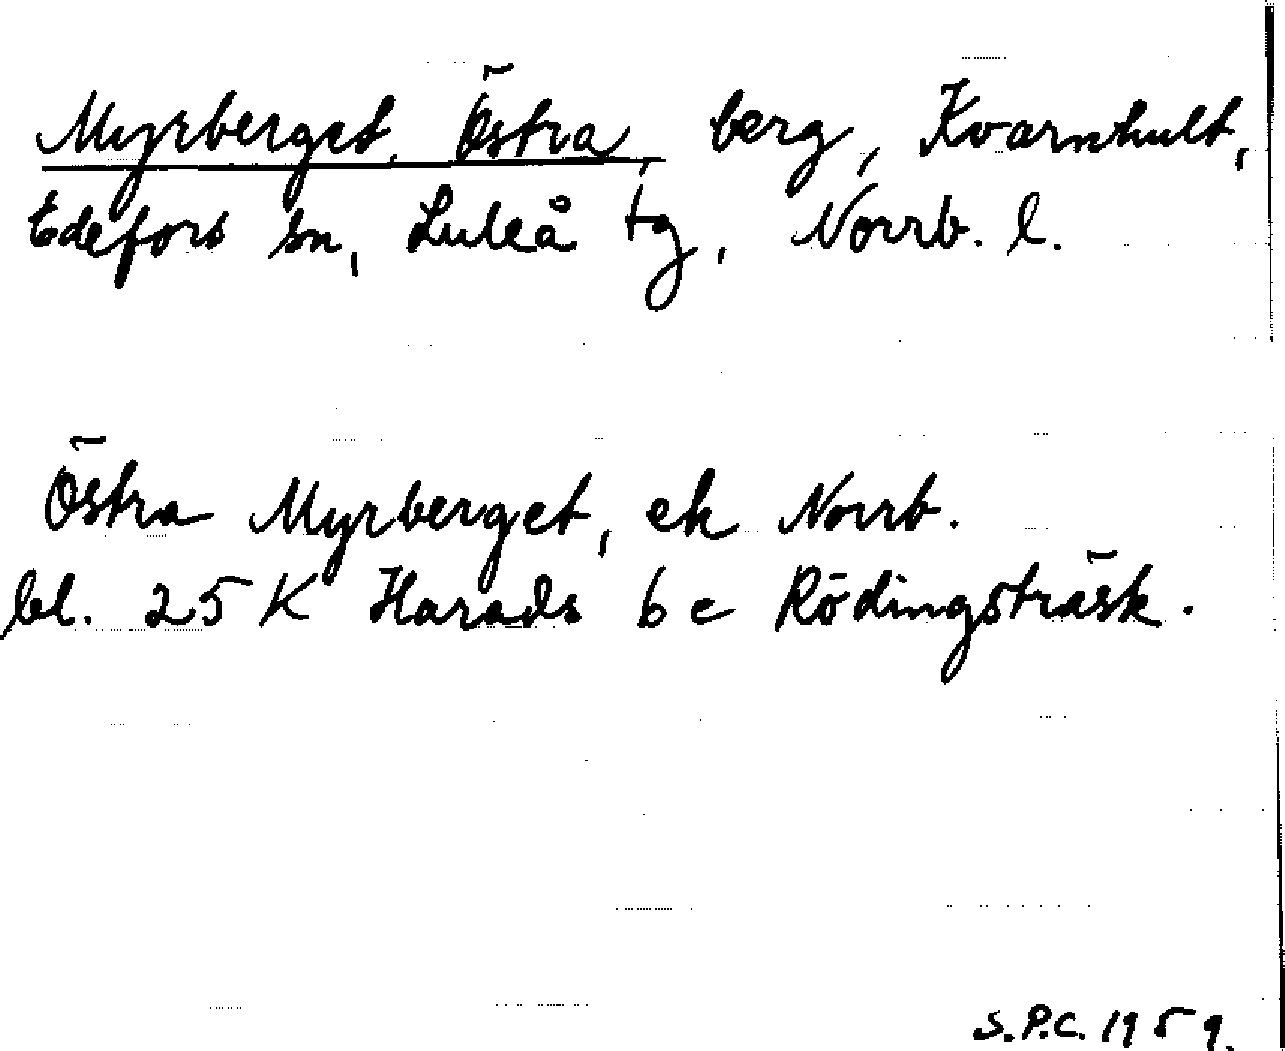 Myrberget, Östra, berg, Kvarnhult,
Edefors sn, Luleå tg, Norrb. l.
Östra Myrberget, ek Norrb.
bl. 25 K Harads 6 c Rödingsträsk.
S.P.C. 1959.